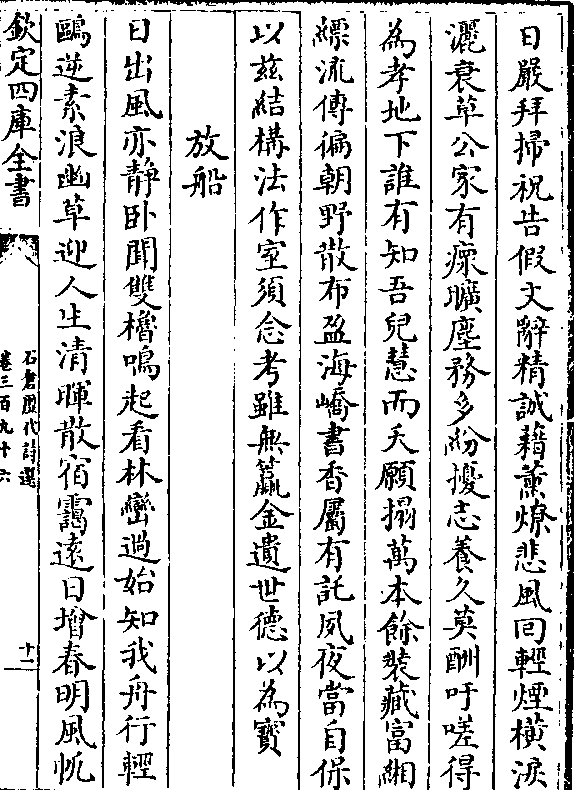 日嚴拜掃祝告假文辭精誠藉薰燎悲風回輕煙横淚
灑衰草公家有瘝曠塵務多紛擾志養久莫酬吁嗟得
為孝地下誰有知吾兒慧而夭願搨萬本餘裝藏富緗
縹流傳徧朝野散布盈海嶠書香屬有託夙夜當自保
以兹結構法作室須念考雖無籯金遺世德以為寳
放船
日出風亦静卧聞雙櫓鳴起看林巒過始知我舟行輕
鷗逆素浪幽草迎人生清暉散宿靄遠日增春明風帆
欽定四庫全書
石倉歷代詩選
卷三百九十六
十二